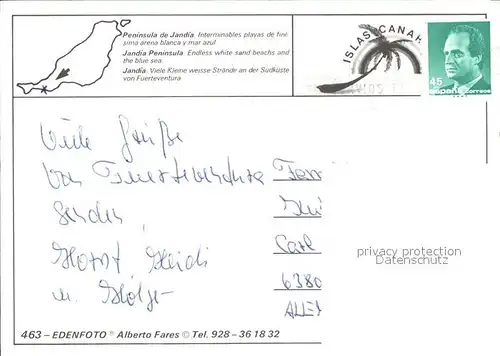 Península de Jandía. Interminables playas de finí-
sima arena blanca y mar azul
Jandía Peninsula. Endless white sand beachs and
the blue sea
Jandía: Viele Kleine weisse Strände an der Südküste
von Fuerteventura
ISLAS CANAR
45
España Correos
Viele Grüße
von Fuerteventura
senden
Horst Heidi
u. Holger
Fam
Carl
6380
privacy protection
Datenschutz
463 – EDENFOTO ® Alberto Fares © Tel. 928 - 36 18 32